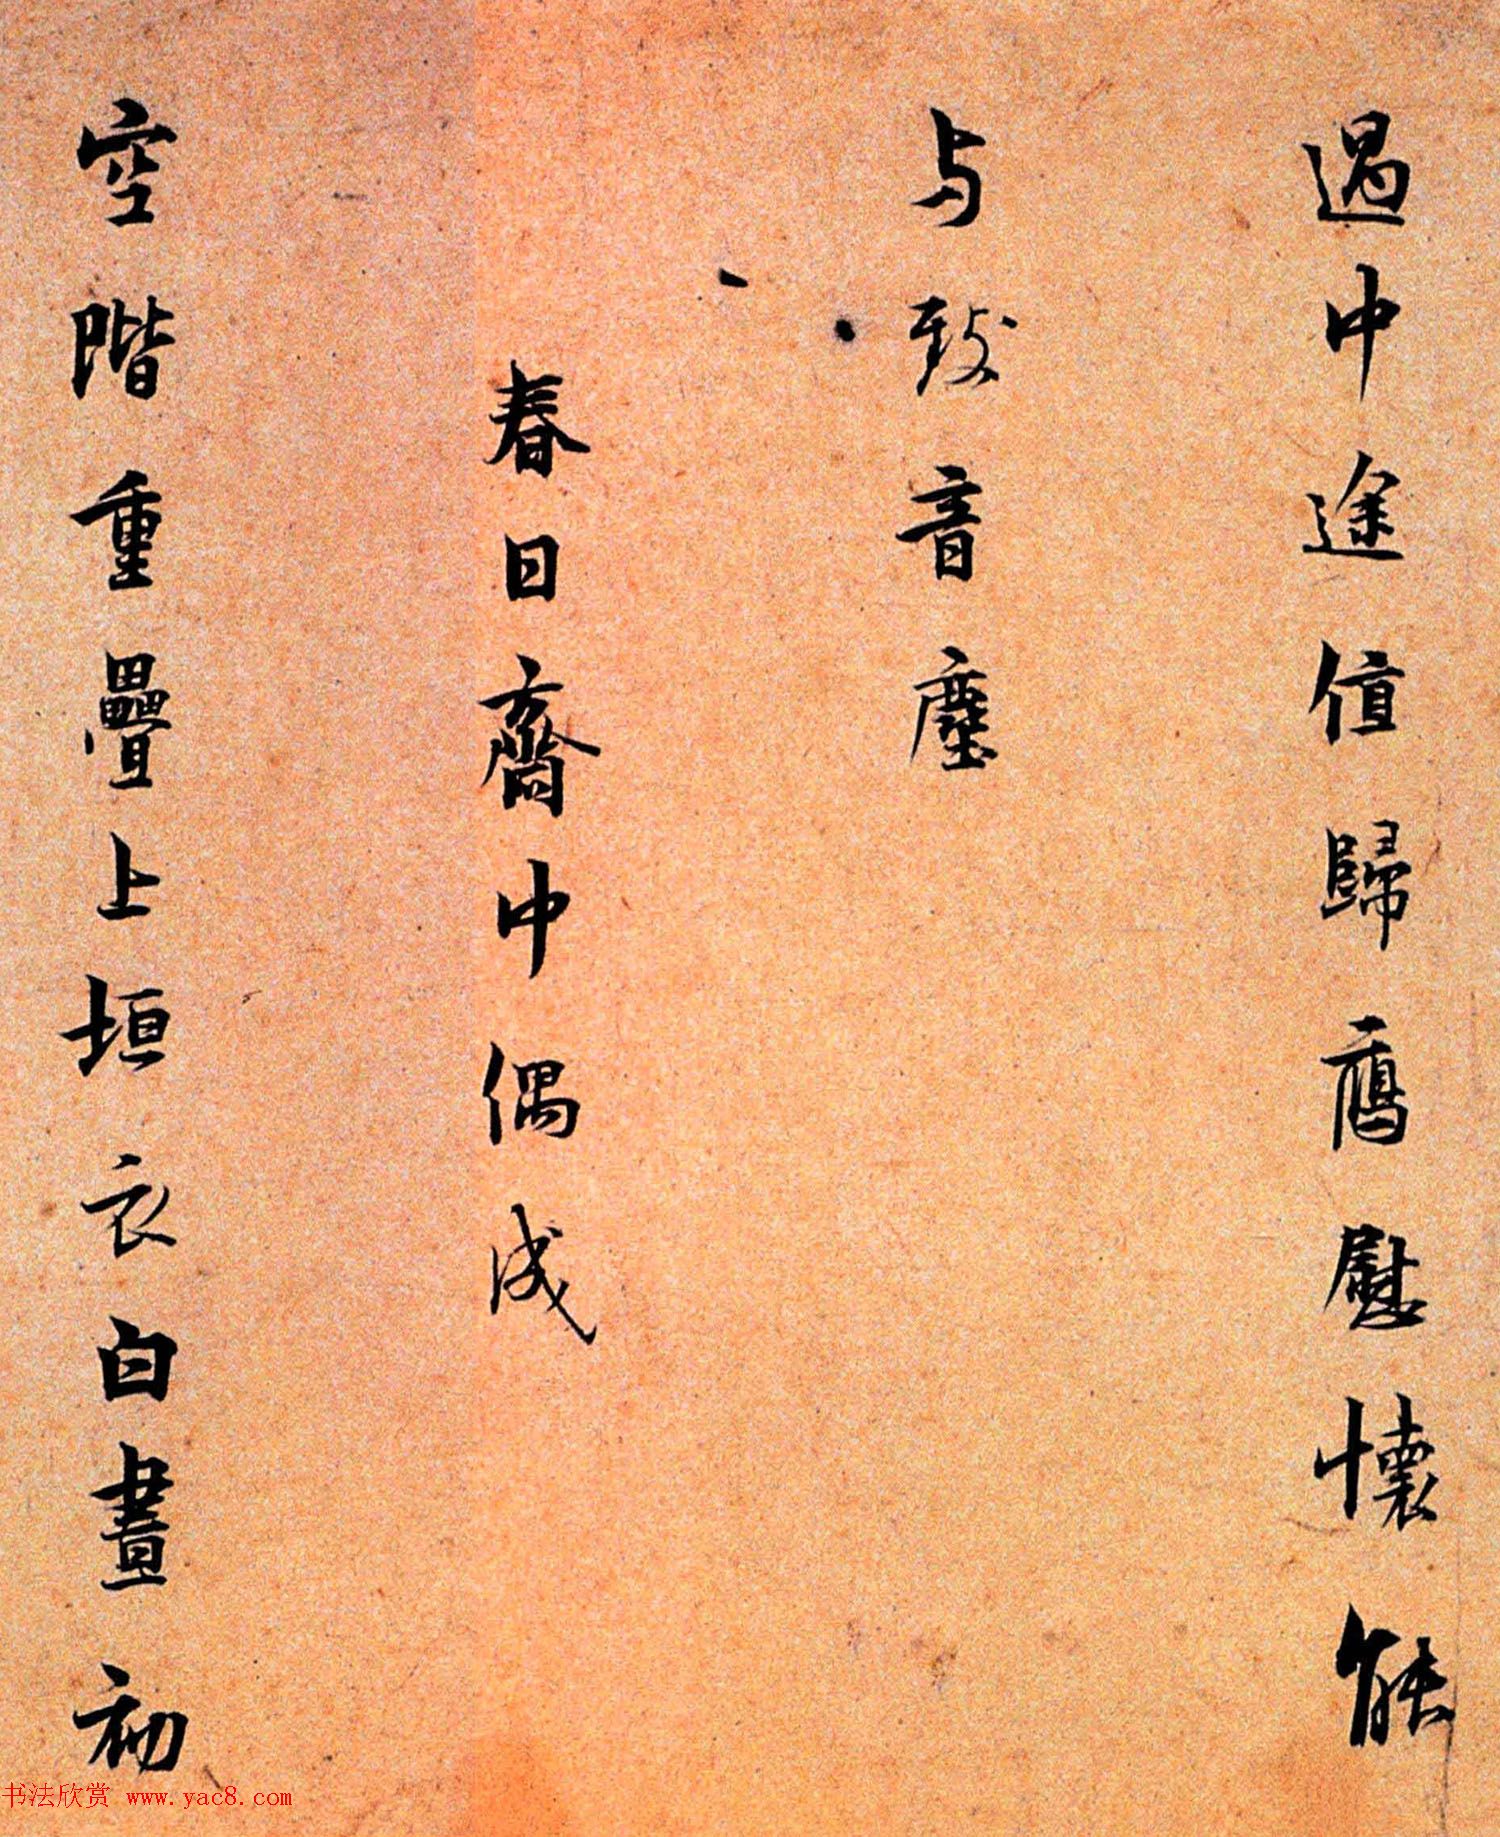 遇中途值歸鴈慰懷能
与致音塵
春日齋中偶成
空階重疊上垣衣白晝初
书法欣赏 www.yac8.com